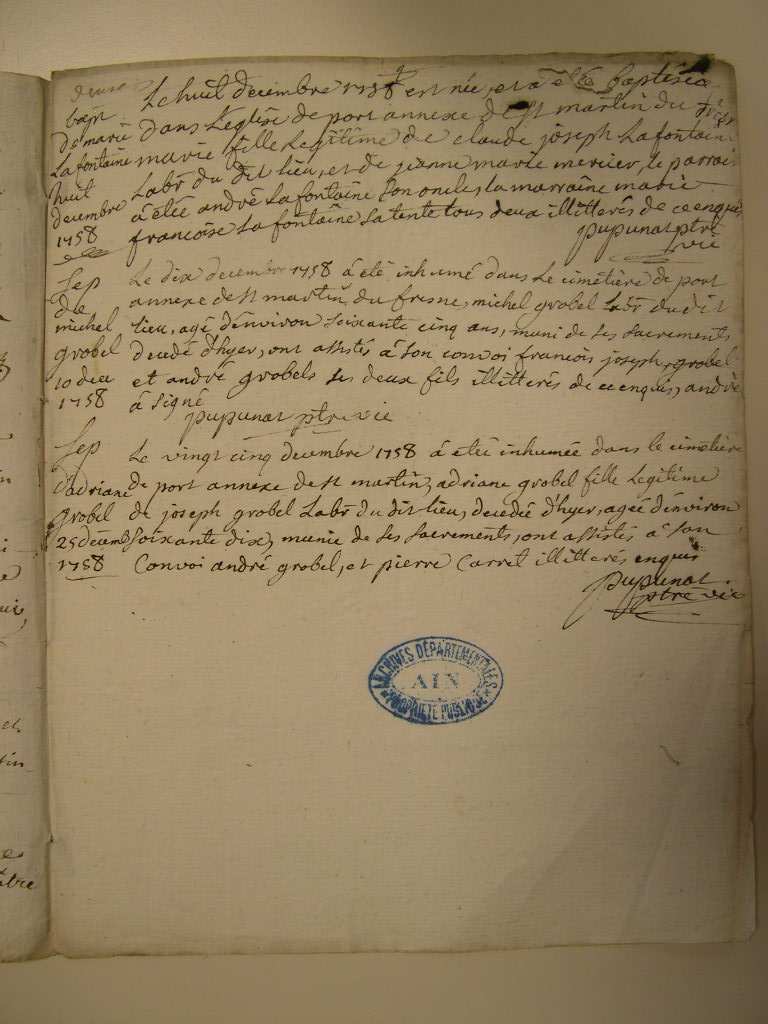 bap.
de marie
La fontaine
huit
decembre
1758
Le huit decembre 1758 est née, et a eté baptisée
dans L'eglise de port annexe de st martin du
marie fille Legitime de claude joseph La fontaine
Labr du dit lieu, et de jeanne marie mercier, le parrai
á etée andré La fontaine son oncle, la marraine marie
francoise La fontaine sa tente tous deux illitterés de ce enquis,
pupunat ptre
vic
Sep
de
michel
grobel
10 dec
1758
Le dix decembre 1758 á eté inhumé dans Le cimetiere de port
annexe de st martin du fresne, michel grobel Labr du dit
lieu, agé d'environ soixante cinq ans, muni de ses sacrements,
decedé d'hyer, ont assistés á son convoi francois joseph grobel
et andré grobels ses deux fils illitterés de ce enquis, andré
á signé
pupunat ptre vic
Sep
d'adriane
grobel
25 decemb
1758
Le vingt cinq decembre 1758 á etée inhumée dans le cimetiere
de port annexe de st martin, adriane grobel fille Legitime
de joseph grobel Labr du dit lieu, decedée d'hyer, agée d'environ
soixante dix, munie de ses sacrements, ont assistés á son
Convoi andré grobel, et pierre Carret illitterés enquis
pupunat
ptre vic
ARCHIVES DÉPARTEMENTALES
AIN
PROPRIÉTÉ PUBLIQUE